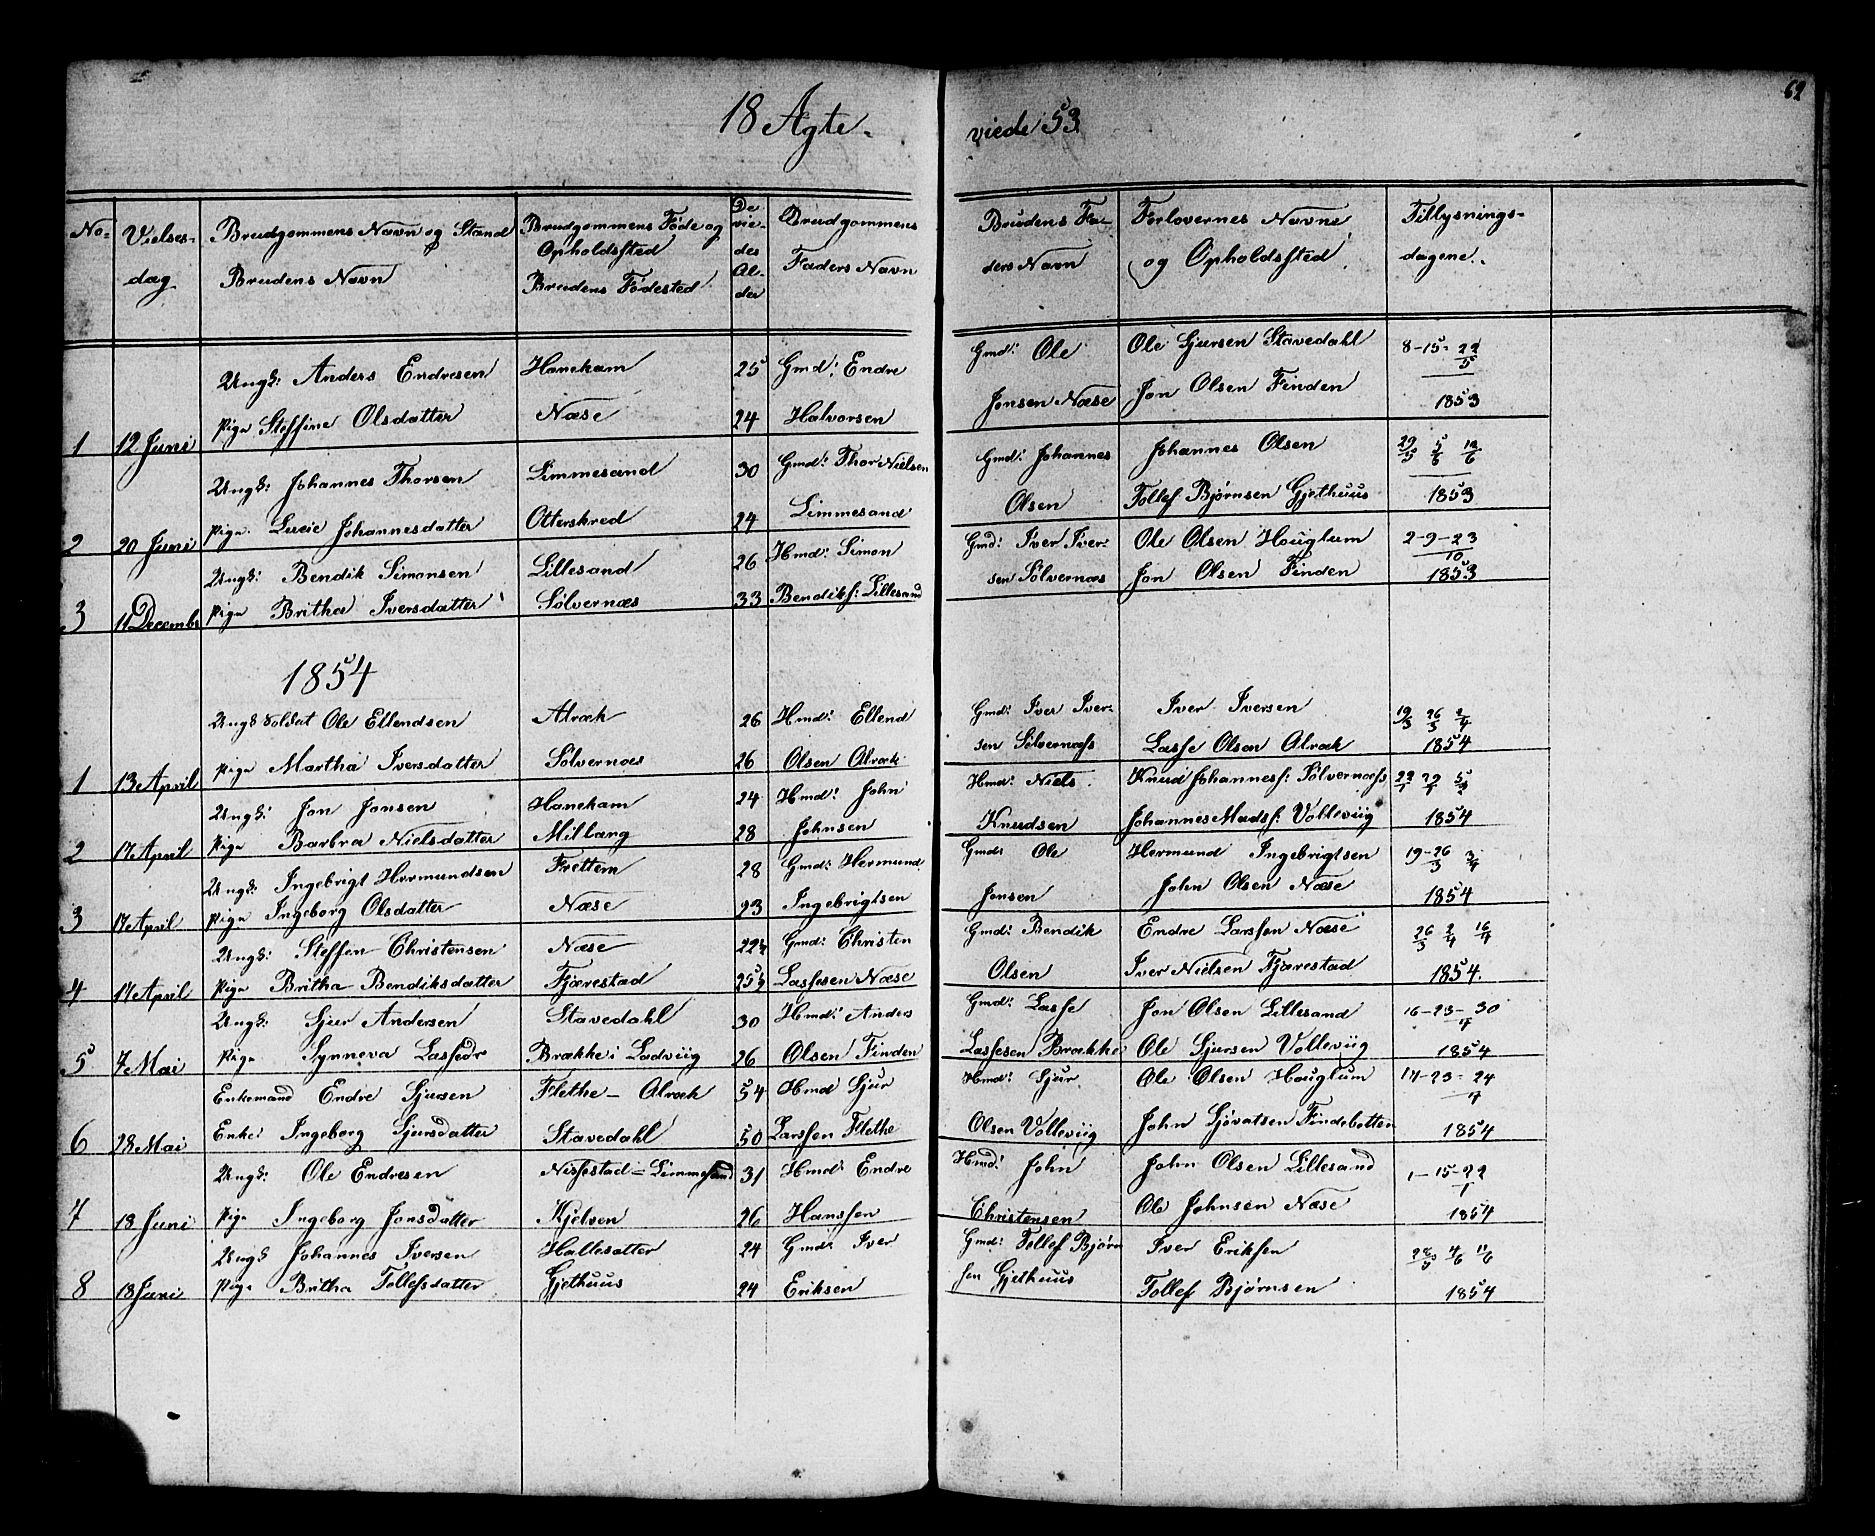 69
18 Ægte-
viede 53
No- Vielses-dag Brudgommens Navn og Stand Brudens Navn Brudgommens Føde og Opholdssted Brudens Fødested De viedes Alder Brudgommens Faders Navn Brudens Faders Navn Forlovernes Navne og Opholdssted Tillysnings-dagene.
Ungk: Anders Endresen Hanekam 25 Gmd: Endre Gmd: Ole Ole Sjursen Stavedahl 8-15-22/5
1 12 Juni Pige Steffine Olsdatter Næse 24 Halvorsen Jonsen Næse Jon Olsen Finden 1853
Ungk: Johannes Thorsen Limmesand 30 Gmd: Thor Nielsen Gmd: Johannes Johannes Olsen 29/5 5/6 12/6
2 20 Juni Pige Lucie Johannesdatter Otterskred 24 Limmesand Olsen Tollef Bjørnsen Gjethuus 1853
Ungk: Bendik Simonsen Lillesand 26 Hmd: Simon Gmd: Iver Iver- Ole Olsen Houglum 2-9-23/10
3 11 Decembr Pige Britha Iversdatter Sølvernæs 33 Bendiks: Lillesand sen Sølvernæs Jon Olsen Finden 1853
1854
Ungk Soldat Ole Ellendsen Alræk 26 Hmd: Ellend Gmd: Iver Iver- Iver Iversen 19/3 26/3 2/4
1 13 April Pige Martha Iversdatter Sølvernæs 26 Olsen Alræk sen Sølvernæss Lasse Olsen Alræk 1854
Ungk: Jon Jonsen Hanekam 24 Hmd: John Hmd: Niels Knud Johanness: Sølvernæss
2 17 April Pige Barbra Nielsdatter Millang 28 Johnsen Knudsen Johannes Mads: Vollevüg 1854
Ungk: Ingebrigt Hermundsen Frettem 28 Gmd: Hermund Gmd: Ole Hermund Ingebrigtsen 19-26/3
3 17 April Pige Ingeborg Olsdatter Næse 23 Ingebrigtsen Jonsen John Olsen Næse 1854
Ungk: Steffen Christensen Næse 22½ Gmd: Christen Gmd: Bendik Endre Larssen Næse 26/3 2/4 16/4
4 17 April Pige Britha Bendiksdatter Fjærestad 25½ Lassesen Næse Olsen Iver Nielsen Fjærestad 1854.
Ungk: Sjur Andersen Stavedahl 30 Hmd: Anders Gmd: Lasse Jon Olsen Lillesand 16-23-30/4
5 7 Mai Pige Synneva Lassedr Brække i Ladvüg 26 Olsen Finden Lassesen Brække Ole Sjursen Vollevüg 1854
Enkemand Endre Sjursen Flethe-Alræk 54 Hmd Sjur Hmd: Sjur Ole Olsen Houglum 17-23-24/4
6 28 Mai Enke: Ingeborg Sjursdatter Stavedahl 50 Larssen Flethe Olsen Vollevüg John Sjøvatsen Findebotten 1854
Ungk: Ole Endresen Nissestad-Limmesand 31 Hmd: Endre Hmd: John John Olsen Lillesand 1-15-22/1
7 18 Juni Pige Ingeborg Jonsdatter 26 Hanssen Christensen Ole Johnsen Næse 1854
Ungk Johannes Iversen Hallesætter 24 Gmd: Iver Gmd: Tollef Bjørn Iver Eriksen 28/5 4/6 11/6
8 18 Juni Pige Britha Tollefsdatter Gjethuus 24 Eriksen sen Gjethuus Tollef Bjørnsen 1854